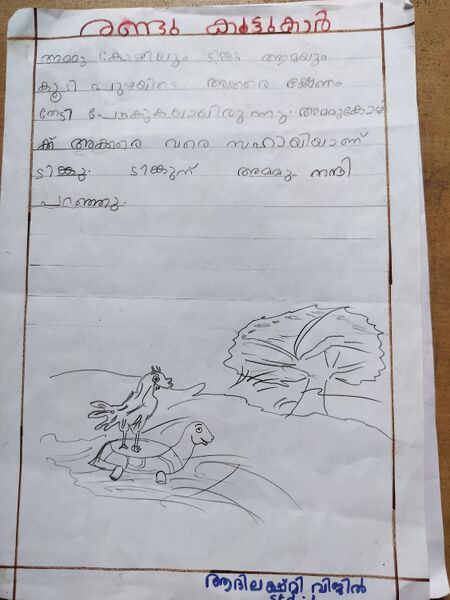 രണ്ടു കൂട്ടുകാർ
അമ്മു കോഴിയും ടിങ്കു ആമയും
കൂടി പുഴയിടെ അക്കരെ ഭക്ഷണം
തേടി പോകുകയായിരുന്നു. അമ്മുകോഴി
ക്ക് അക്കരെ വരെ സഹായിയാണ്
ടിങ്കു. ടിങ്കുന് അമ്മു നന്ദി
പറഞ്ഞു.
വിജിൽ